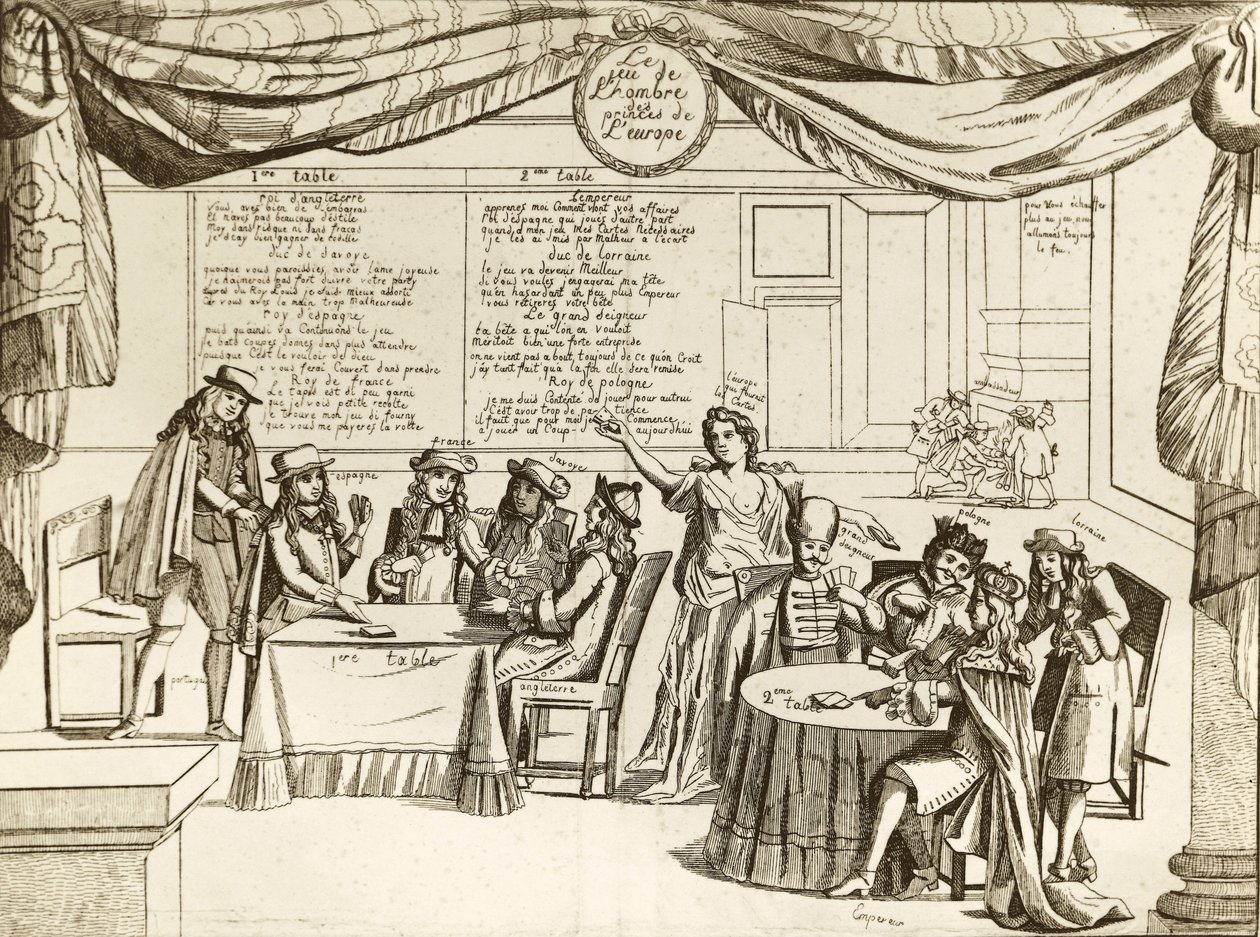 Le
jeu de
L'hombre
des
princes de
L'europe
1ere table
roi d'angleterre
Vous, avés bien de l'embarras
Et n'avés pas beaucoup d'estile
Moy sans risque ni sans fracas
je sçay bien gagner de codille
duc de savoye
quoique vous paroissiés, avoir l'ame joyeuse
je n'aimerois pas fort suivre votre party
du Roy Louis je suis mieux assorti
Car vous avés la main trop Malheureuse
Roy d'espagne
puis qu'ainsi va Continuons le jeu
je bats coupés donnés sans plus attendre
puisque C'est le vouloir de dieu
je vous ferai Couvert sans prendre
Roy de france
Le tapis est si peu garni
que je vois petite recolte
je trouve mon jeu si fourny
que vous me payerés la volte
2eme table
L'empereur
apprenés moi Comment vont vos affaires
roi d'espagne qui joués d'autre part
quand a mon jeu Mes Cartes Necessaires
je les ai mis par Malheur a l'ecart
duc de lorraine
le jeu va devenir Meilleur
si vous voulés j'engagerai ma tête
qu'en hasardant un peu plus Empereur
vous retirerés votre bête
Le grand seigneur
La bête a qui l'on en Vouloit
Méritoit bien une forte entreprise
on ne vient pas a bout, toujours de ce qu'on Croit
j'ay tant fait qu'a la fin elle sera remise
Roy de pologne
je me suis Contenté de jouer pour autrui
C'est avoir trop de patience
il faut que pour moi je Commence
a jouer un Coup aujourd'hui
pour vous échauffer
plus au jeu, nous
allumons toujours
le feu.
l'europe
qui fournit
les Cartes
ambassadeur
france
savoye
espagne
portugal
1ere table
angleterre
grand
seigneur
pologne
lorraine
2eme
table
Empereur